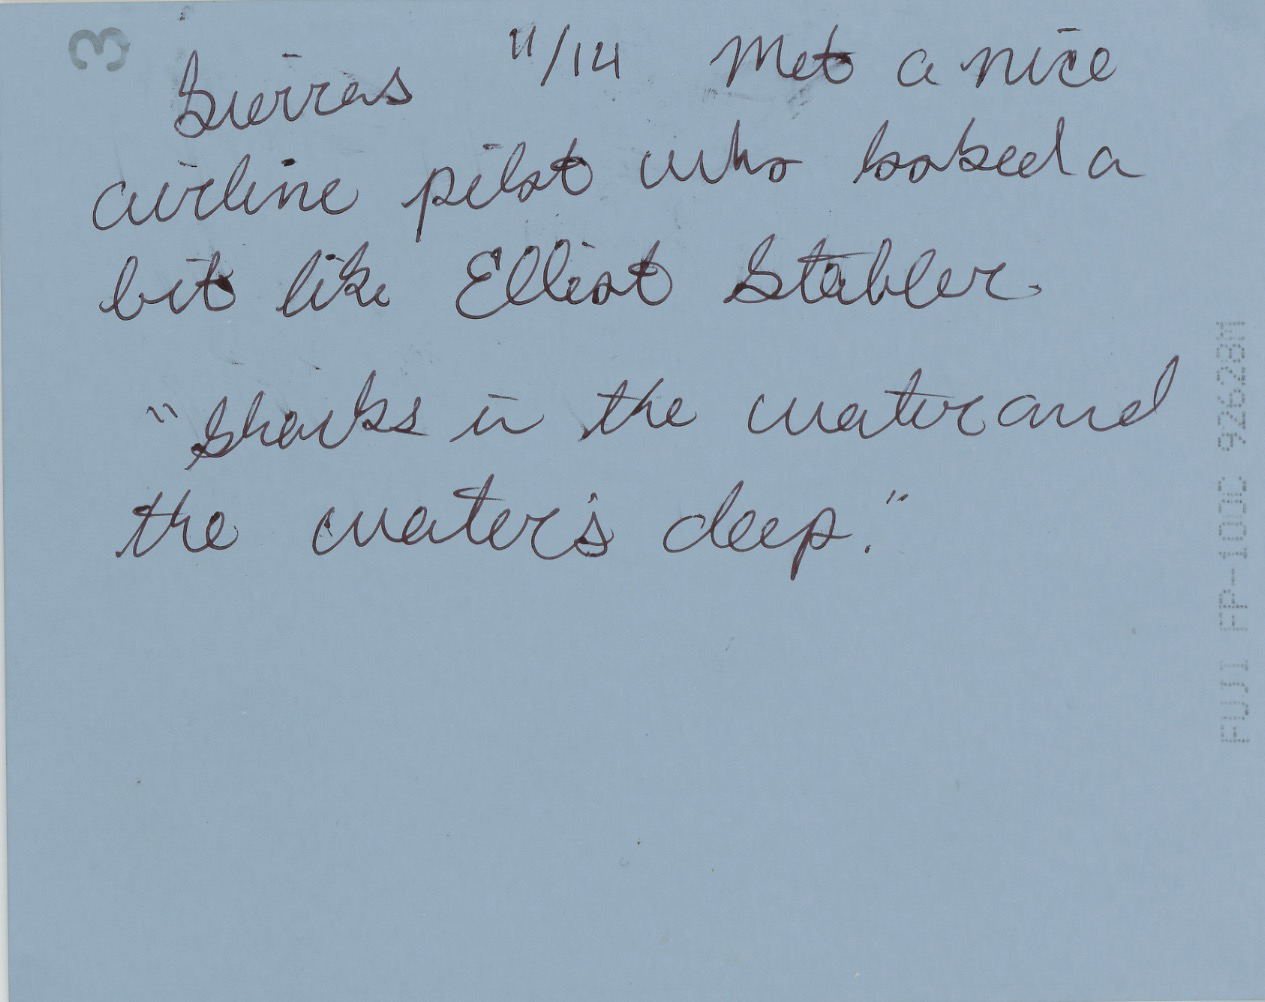 3
Sierras 11/14 Met a nice
airline pilot who looked a
bit like Elliot Stabler
"Sharks in the water and
the water's deep."
FUJI FP-100C 92628M